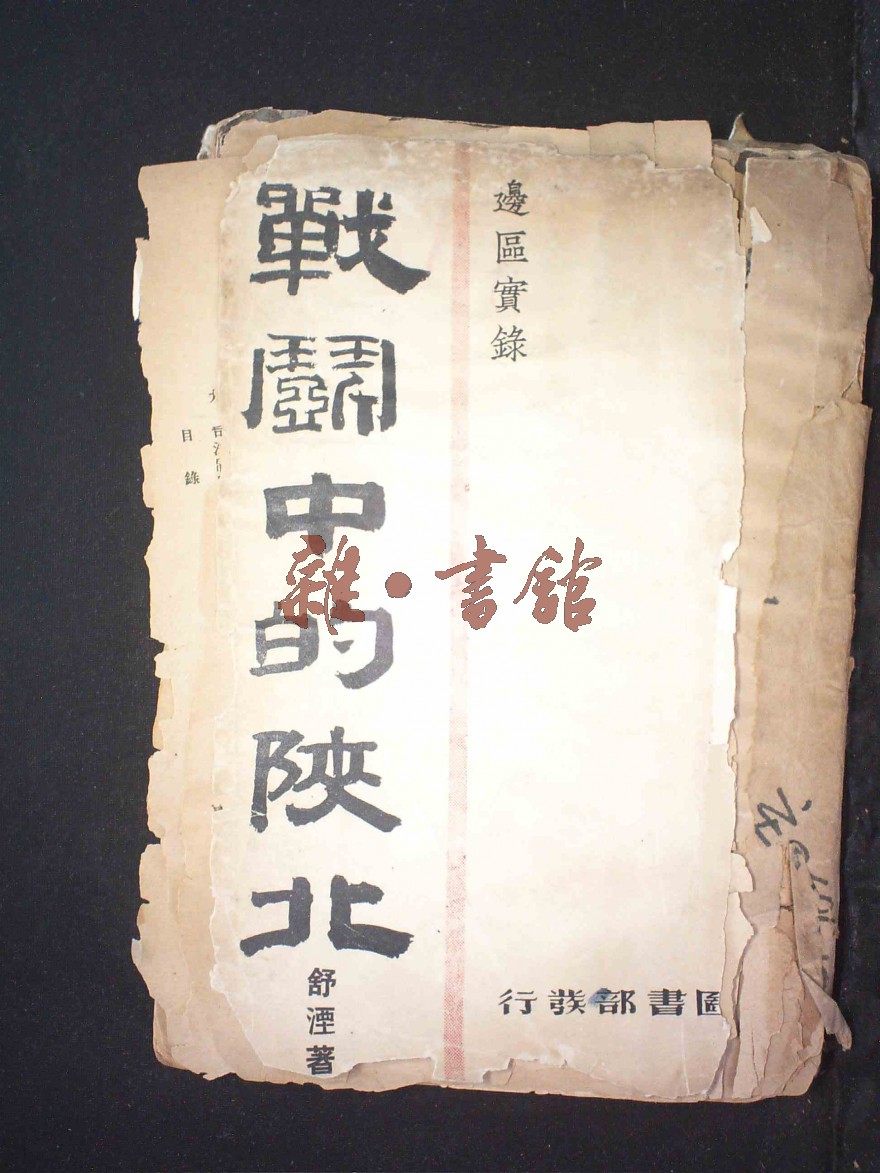 邊區實錄
戰鬭中的陝北
舒湮著
圖書部發行
雜·書館
目錄